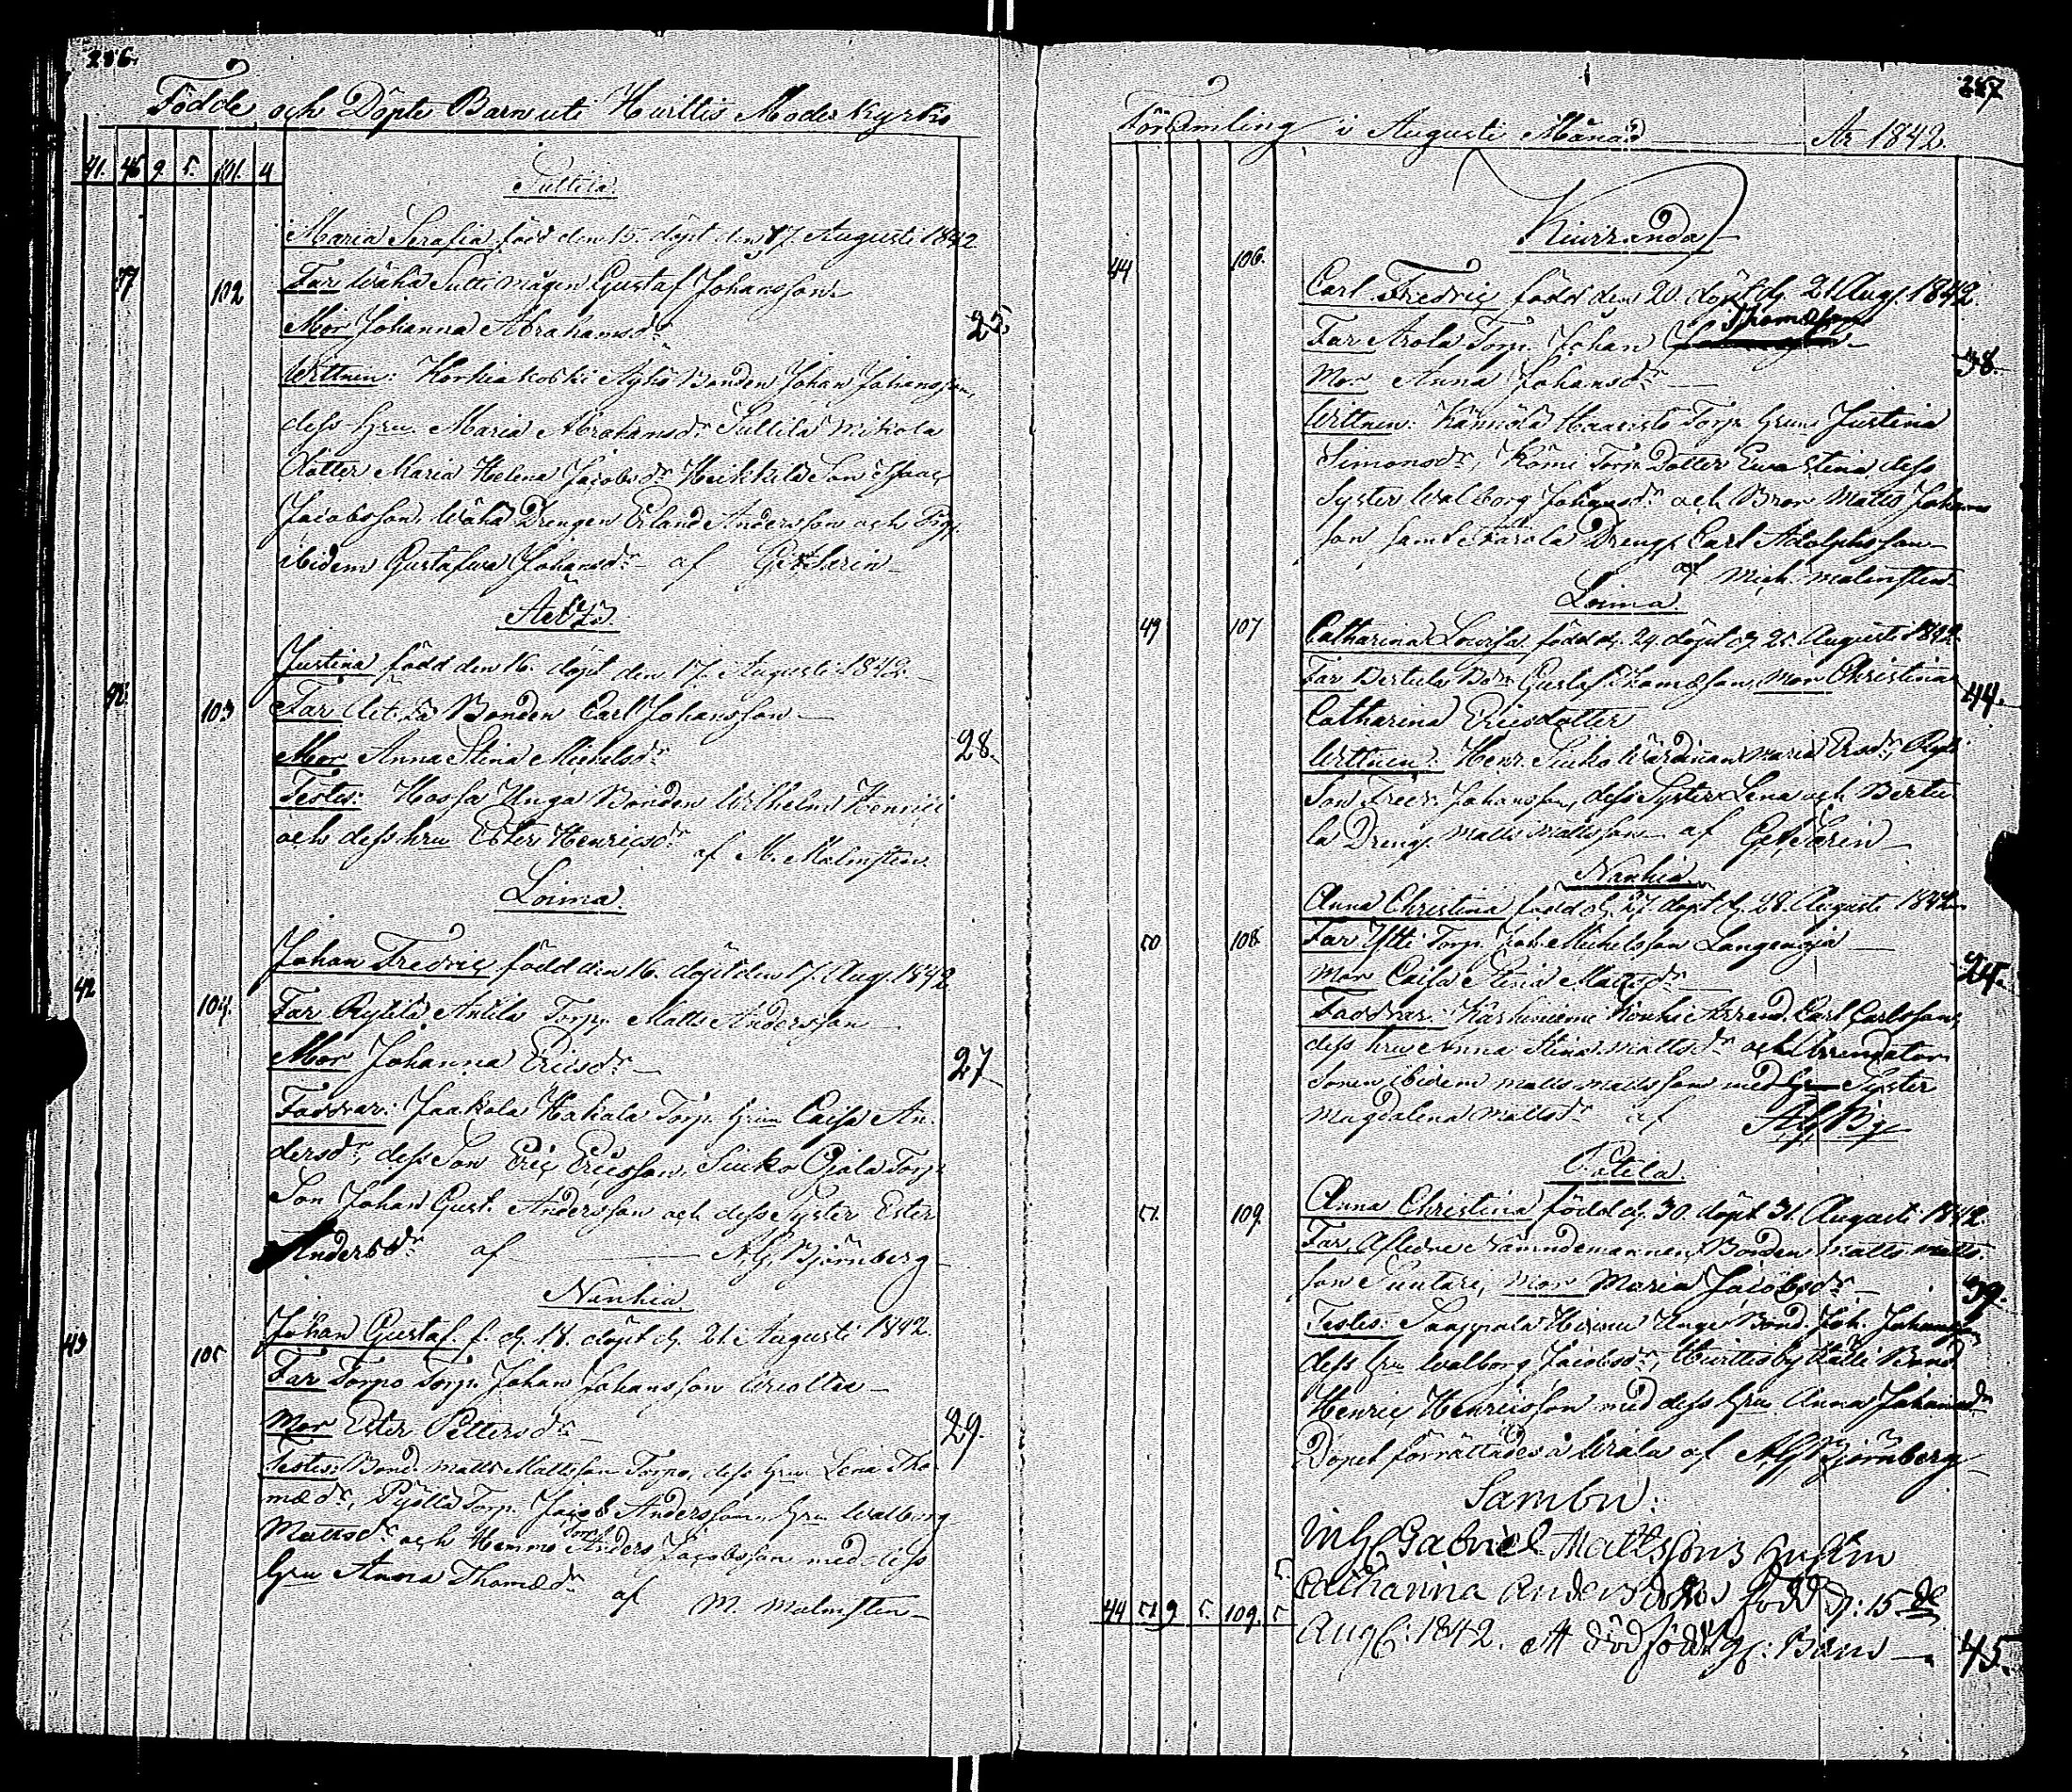 286.
Födde och Döpte Barn uti Huittis Moder Kyrko
41. 46 9. 5. 101. 4
Suttila.
Maria Serafia född den 15. döpt den 17. Augusti 1842
47 102
Far Wähä Sutti mågen Gustaf Johansson
Mor Johanna Abrahamsdr
25.
Wittnen: Korkiakoski Äyhö Bonden Johan Johansson,
dess hru Maria Abrahamsdr Suttila Mikola
Dotter Maria Helena Jacobsdr Heikkilä Son Isaac
Jacobsson, Wähä Drengen Erland Andersson och Pig.
ibidem Gustafva Johansdr af G: Sarin
Justina född den 16. döpt den 17. Augusti 1842.
48. 103
Far Bonden Carl Johansson
Mor Anna Stina Michelsdr
28.
Testes: Hossa Unga Bonden Wilhelm Henrici
och dess hru Ester Henricsdr af M. Malmsten.
Loima.
Johan Fredric född den 16. döpt den 17. Aug. 1842
42 104.
Far Rytilä Antila Torp. Matts Andersson
Mor Johanna Ericsdr
27
Faddrar: Jaakola Hakala Torp. hrun Caisa An-
dersdr, dess Son Eric Ericsson, Suiko Ojala Torp.
Son Johan Gust. Andersson och dess Syster Ester
Andersdr af A. G. Björnberg
Nanhia.
Johan Gustaf. f. d. 18. döpt d. 21. Augusti 1842.
43 105
Far Torpo Torp. Johan Johansson
Mor Ester Pettersdr
29.
Testes: Bond. Matts Mattsson Torpo, dess hru Lena Tho-
mædr, Torp. Jacob Andersson, hru Walborg
Mattsdr och Hemmo Torp. Anders Jacobsson med dess
hru Anna Thomædr
af M. Malmsten
287
Församling i Augusti Månad År 1842.
Kiurranda
44 106.
Carl Fredric född den 20. döpt d. 21 Aug. 1842.
Thomasson
Far Arola Torp. Johan
Mor Anna Johansdr
38.
Wittnen: Kännölä Haavisto Torp. hrun Justina
Simonsdr, Kömi Torp. Dotter Ewa Stina dess
Syster Walborg Johansdr och Bror Matts Johans
son samt Drengs. Carl Adolphsson
af Mich. Malmsten
Loima.
49 107
Catharina Lovisa född d. 24. döpt d. 25. Augusti 1842.
Far Bertula Bdn Gustaf Thomasson, Mor Christina
44.
Catharina Ericsdotter
Wittnen: Henr. Suiko Wärdinan Maria Ersdr
Son Fredr. Johansson, dess Syster Lena och Bertu-
la Dreng. Matts Mattsson af G: Sarin
Nanhia
Anna Christina född d. 27. döpt d. 28. Augusti 1842
50 108
Far Ytti Torp. Joh. Michelsson Langenoja
Mor Caisa Stina Mattsdr
24.
Faddrar: Karhiniemi Kouhi Arrend. Carl Carlsson,
dess hru Anna Stina Mattsdr och Arrendator
Sonen ibidem Matts Mattsson med Syster
Magdalena Mattsdr af A G Bg
51. 109.
Anna Christina född d. 30. döpt 31. Augusti 1842.
Far Aflidne Nämndemannen Bonden Matts Matts-
son Puntari, Mor Maria Jacobsdr
39.
Testes: Saappala Unge Bond. Joh. Johansson
dess hru Walborg Jacobsdr, Huittisby Källi Bond
Henric Henricsson med dess hru Anna Johansdr
Dopet förrättades å Wiala af A G Björnberg
Sambu:
Inh: Gabriel Mattssons hustru
5.
Catharina Andersdotter född d: 15 de
44 51 9 5. 109. 5
Aug: 1842. ett dödfödt g: Barn
45.